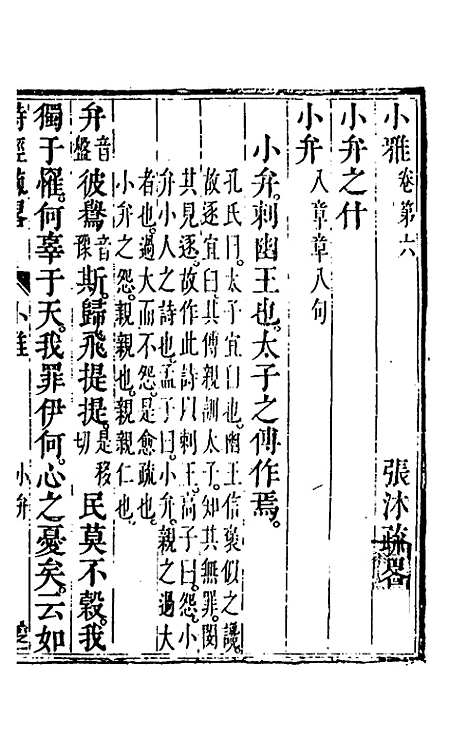 小雅卷第六 張沐疏畧
小弁之什
小弁八章章八句
小弁刺幽王也太子之傅作焉
孔氏曰太子宜臼也幽王信褒似之讒
故逐宜臼其傅親訓太子知其無罪閔
其見逐故作此詩以刺王高子曰怨小
弁小人之詩也孟子曰小弁親之過大
者也過大而不怨是愈疏也
小弁之怨親親也親親仁也
弁音盤彼鸒音豫斯歸飛提提是移切民莫不穀我
獨于罹何辜于天我罪伊何心之憂矣云如
詩經疏畧 小雅 小弁